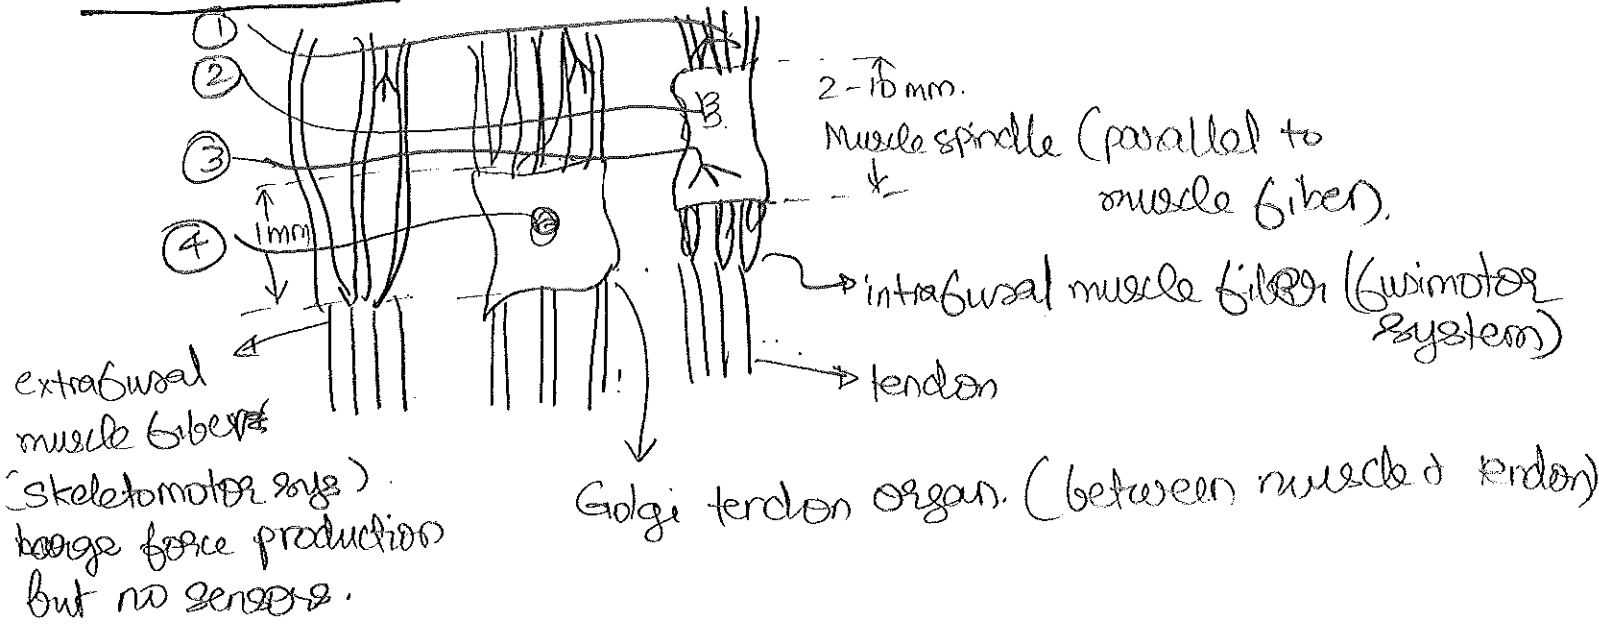 1
2
3
4
1mm
2-10 mm.
Muscle spindle (parallel to
muscle fiber).
intrafusal muscle fiber (fusimotor
system)
tendon
extrafusal
muscle fiber
(skeletomotor sys)
large force production
but no sensors.
Golgi tendon organ. (between muscle & tendon)